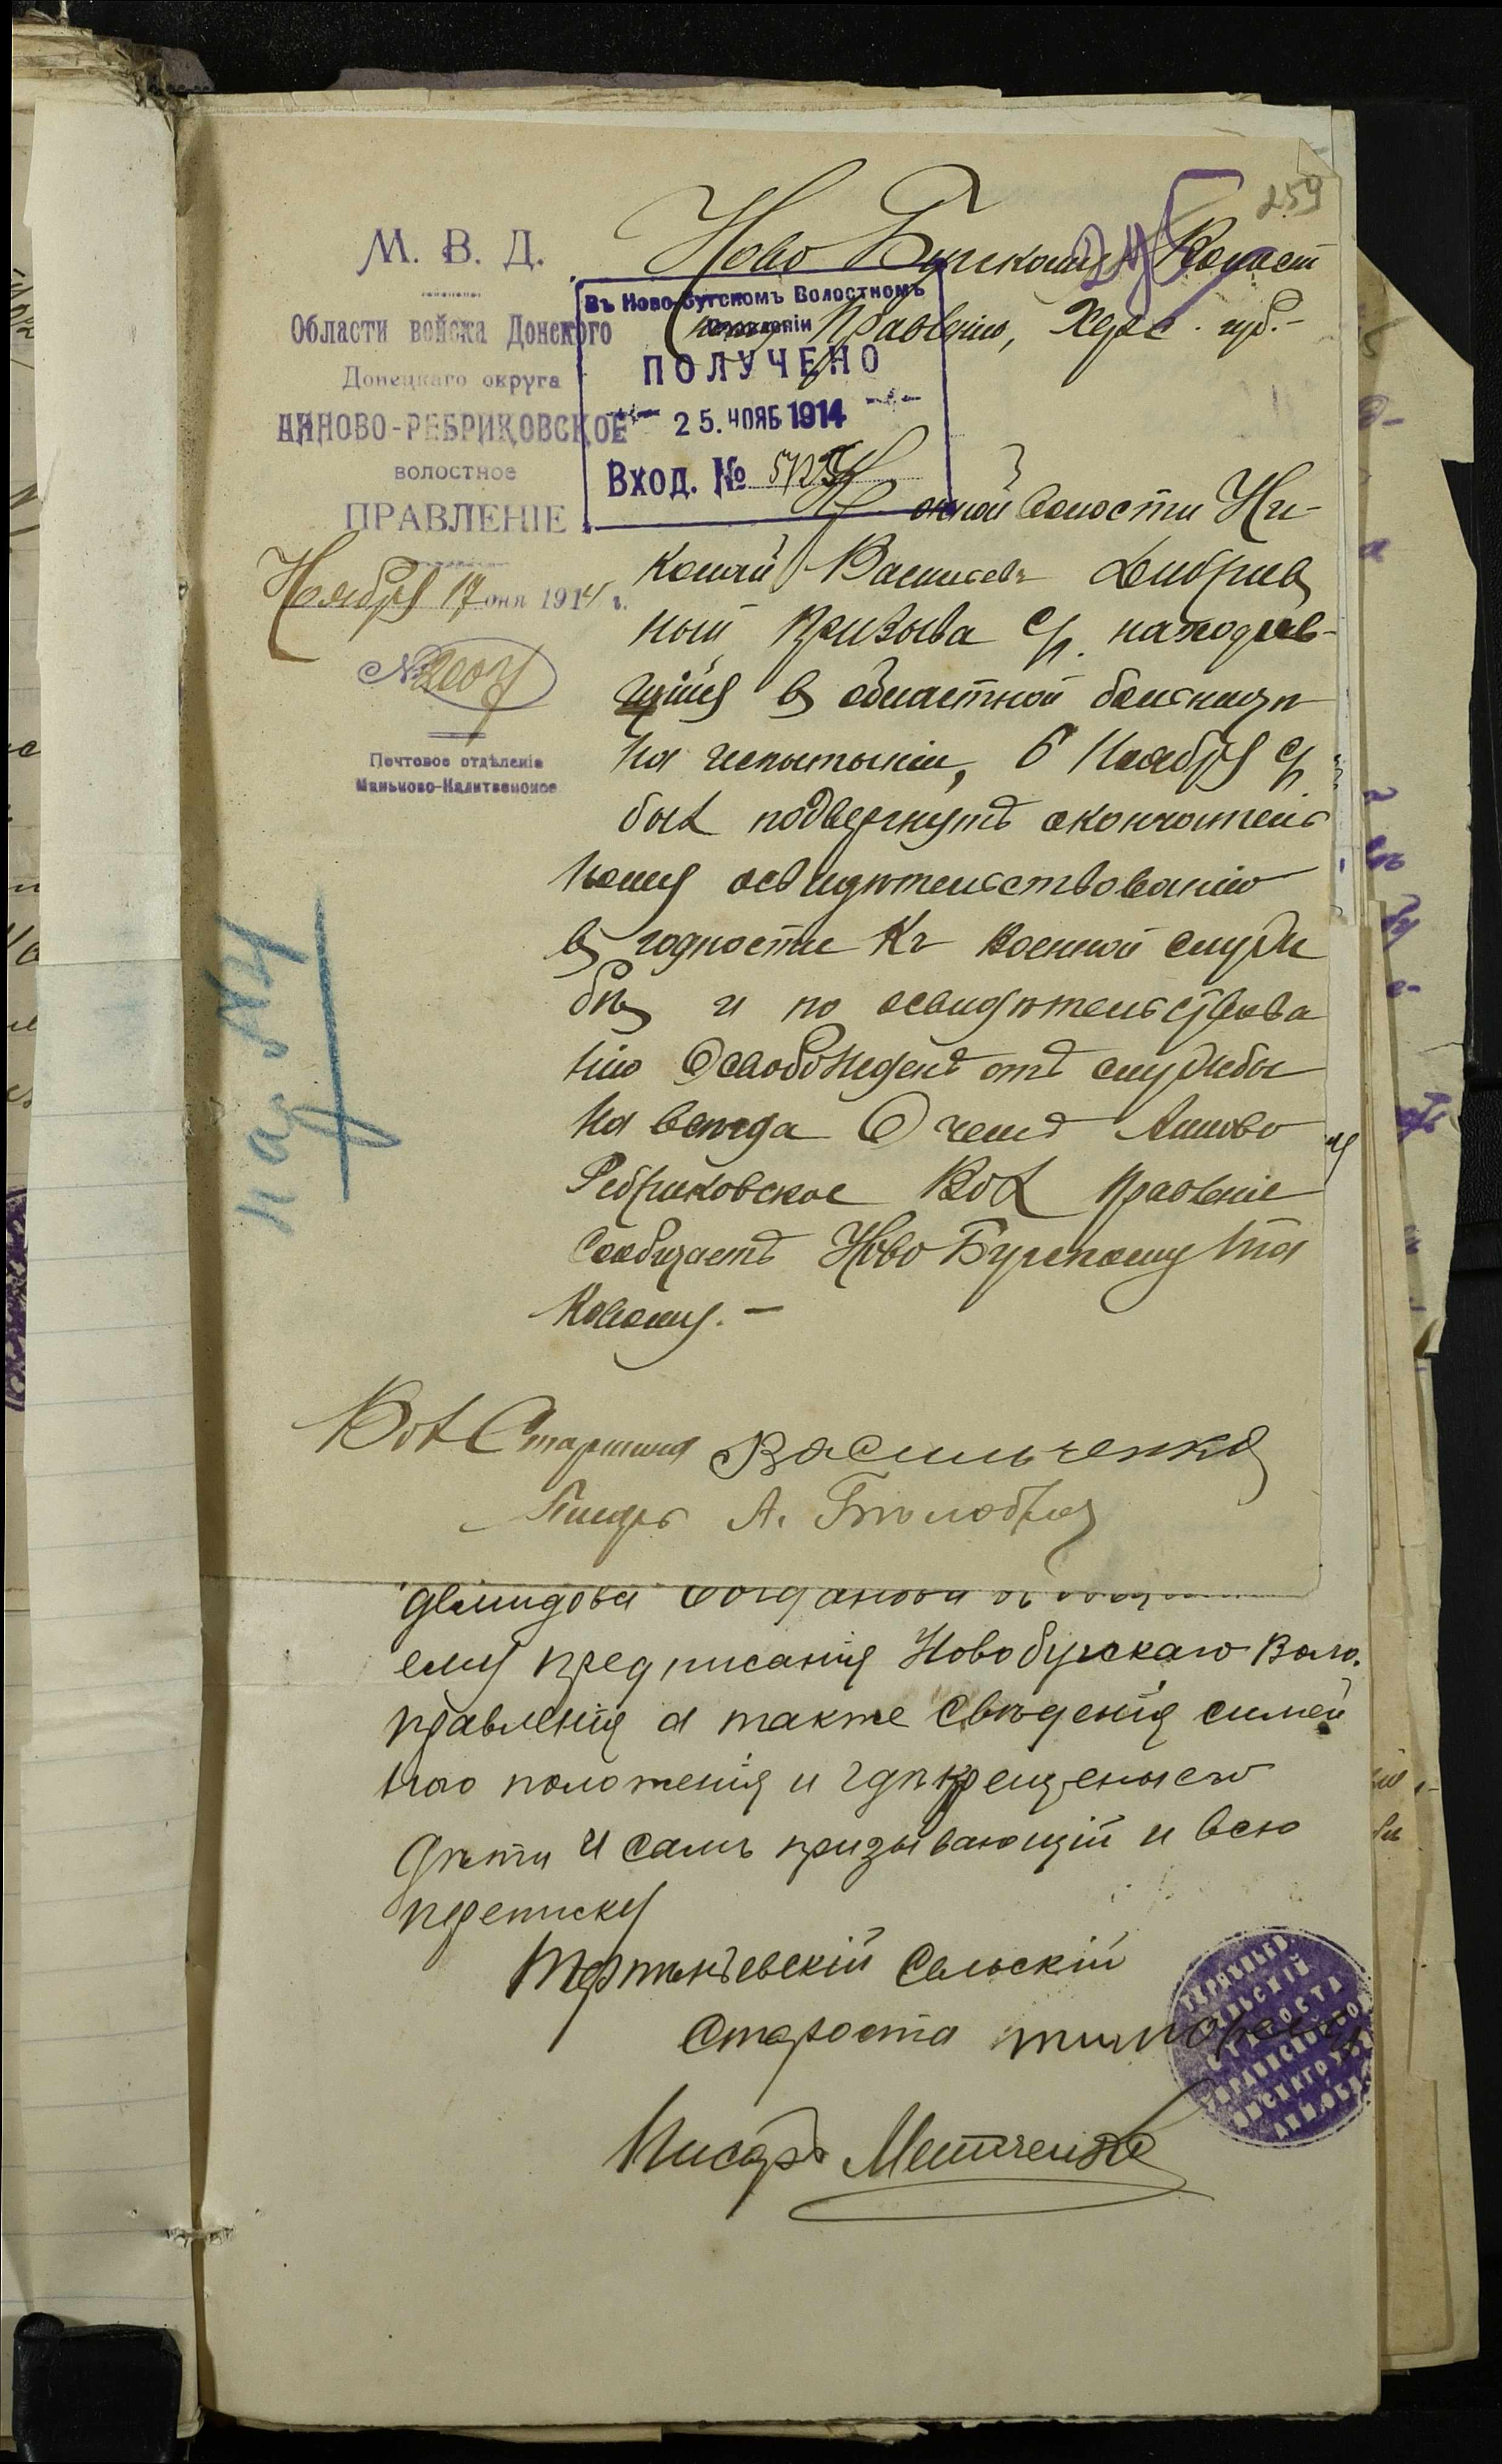 259
М. В. Д.
Области войска Донского
Донецкаго округа
АННОВО-РЕБРИКОВСКОЕ
волостное
ПРАВЛЕНІЕ
Ноября 17 дня 1914 г.
№
Почтовое отдѣленіе
Маньково-Калитвенское
Ново Бугскому Волост
Правленію, Херс. губ.-
Въ Ново-Бугскомъ Волостномъ
Правленіи
ПОЛУЧЕНО
25. НОЯБ 1914
Вход. №
волости Ни-
колай Васильевъ
ный призыва с/г. находив-
шійся в областной больницѣ
на испытаніи, 6 Ноября с/г.
был подвергнутъ окончатель
ному освидѣтельствованію
в годности къ военной служ
бѣ и по освидѣтельствова
нію Освобожденъ отъ службы
на всегда О чемъ Анново
Ребриковское Вол Правленіе
сообщаетъ Ново Бугскому та
ковому. -
Вол Старшина Васильченко
Писарь А.
ему предписанія Новобугскаго Воло.
правленія а также Свѣденія симей
наго положенія и гдѣ крещены его
дѣти и самъ призывающій и всю
переписку
Сельскій
Староста
Писарь